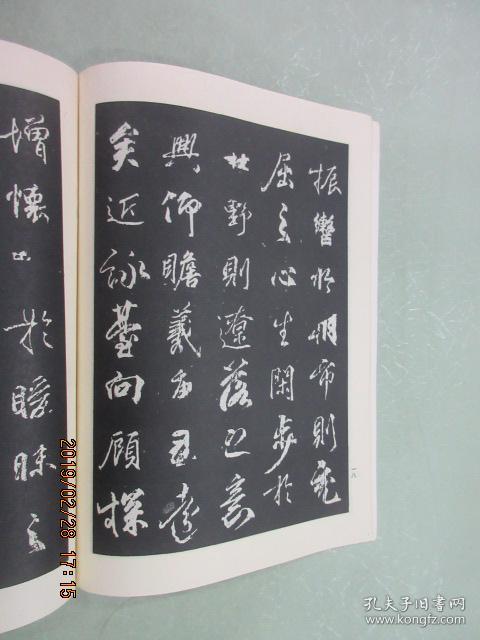 振轡於明市則充
屈之心生閑步於
林野則遼落之意
興仰瞻羲遠
矣近詠臺向顧探
增懷於曖昧之
一八
2019/02/28 17:15
孔夫子旧书网
www.kongfz.com